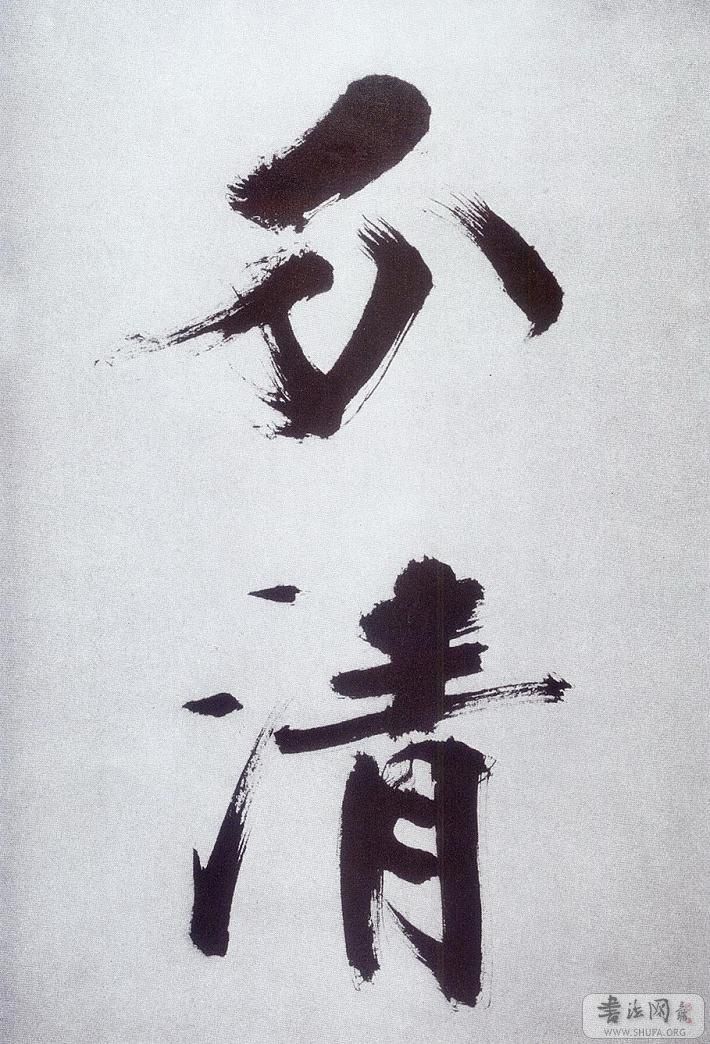 分
清
书法网
WWW.SHUFA.ORG